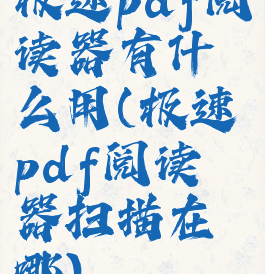 极速pdf阅
读器有什
么用(极速
pdf阅读
器扫描在
哪)